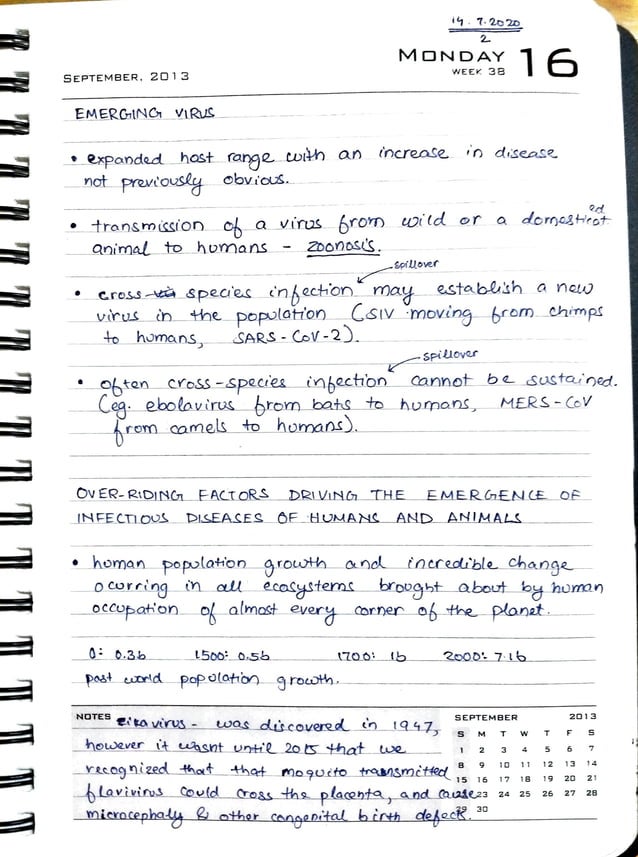 14.7.2020
2
SEPTEMBER, 2013
MONDAY 16
WEEK 38
EMERGING VIRUS
• expanded host range with an increase in disease
not previously obvious.
• transmission of a virus from wild or a domesticated
animal to humans - zoonosis.
spillover
• cross- species infection may establish a new
virus in the population (SIV moving from chimps
to humans, SARS-CoV-2).
spillover
• often cross-species infection cannot be sustained.
(eg. ebolavirus from bats to humans, MERS-CoV
from camels to humans).
OVER-RIDING FACTORS DRIVING THE EMERGENCE OF
INFECTIOUS DISEASES OF HUMANS AND ANIMALS
• human population growth and incredible change
ocurring in all ecosystems brought about by human
occupation of almost every corner of the planet.
0: 0.3b 1500: 0.5b 1700: 1b 2000: 7.1b
past world population growth.
NOTES zika virus - was discovered in 1947,
however it wasnt until 2015 that we
recognized that that moquito transmitted
flavivirus could cross the placenta, and cause
microcephaly & other congenital birth defects.
SEPTEMBER 2013
S M T W T F S
1 2 3 4 5 6 7
8 9 10 11 12 13 14
15 16 17 18 19 20 21
23 24 25 26 27 28
29 30